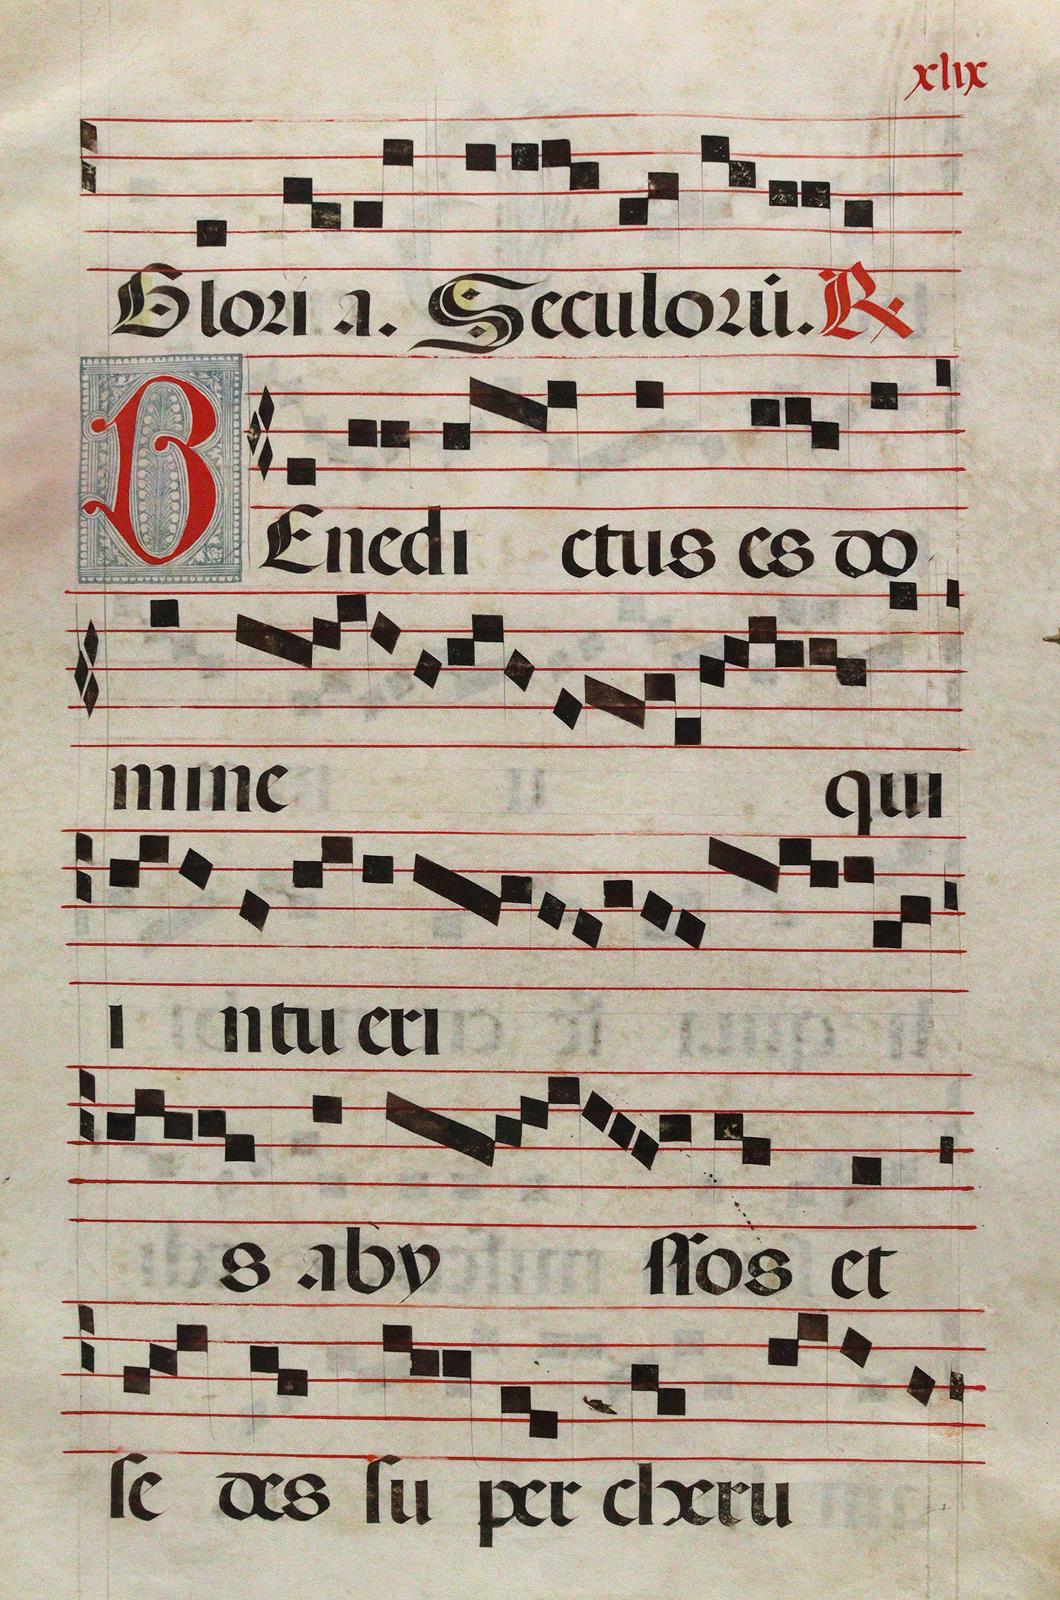 xlix
Glori a. Seculorū. R
BEnedi ctus es do
mine qui
i ntu eri
s aby ssos et
se des su per cheru